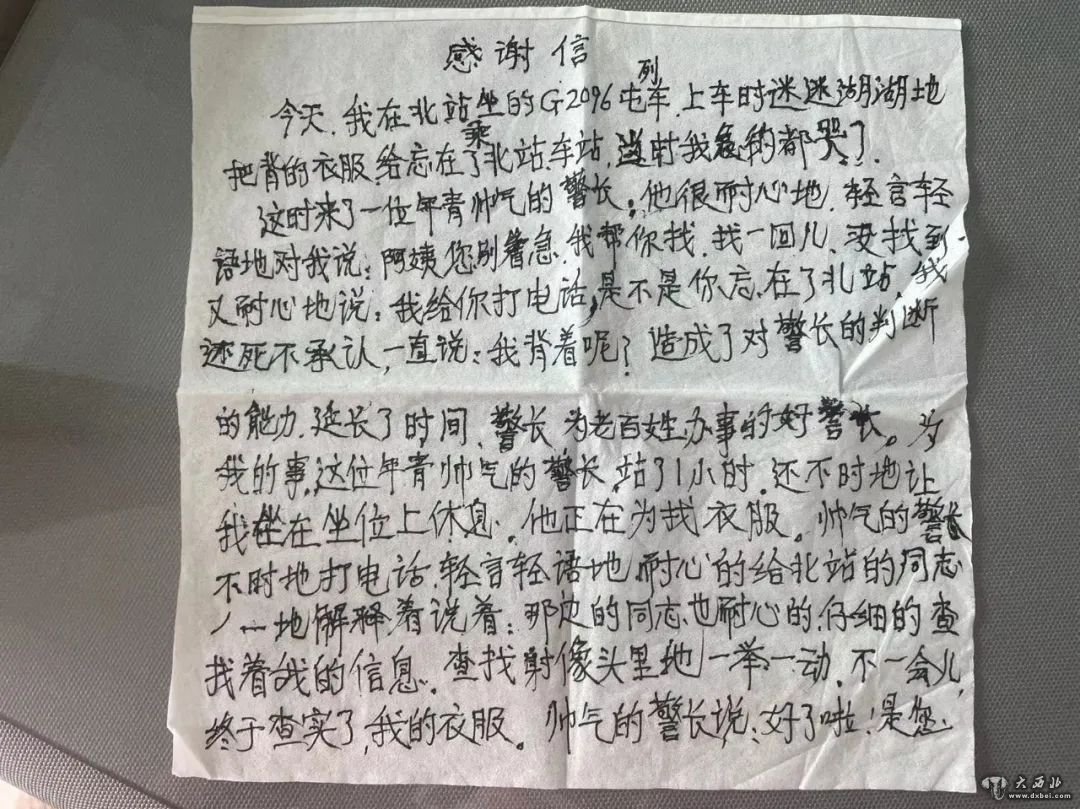 感谢信
今天.我在北站坐的G2096列车.上车时迷迷湖湖地
把背的衣服.给忘在了北站.乘车站.当时我急的都哭了.
这时来了一位年青帅气的警长.他很耐心地.轻言轻
语地对我说:阿姨您别着急.我帮你找.找一回儿.没找到.
又耐心地说:我给你打电话,是不是你忘.在了北站.我
还死不承认,一直说:我背着呢?造成了对警长的判断
的能力.延长了时间.警长为老百姓办事的好警长。为
我的事,这位年青帅气的警长.站了1小时.还不时地让
我坐在坐位上休息.他正在为找衣服.帅气的警长
不时地打电话.轻言轻语地.耐心的给北站的同志
一一地解释着说着:那边的同志也耐心的.仔细的查
找着我的信息.查找射像头里地一举一动.不一会儿,
终于查实了,我的衣服。帅气的警长说:好了啦!是您.
大西北
www.dxbei.com